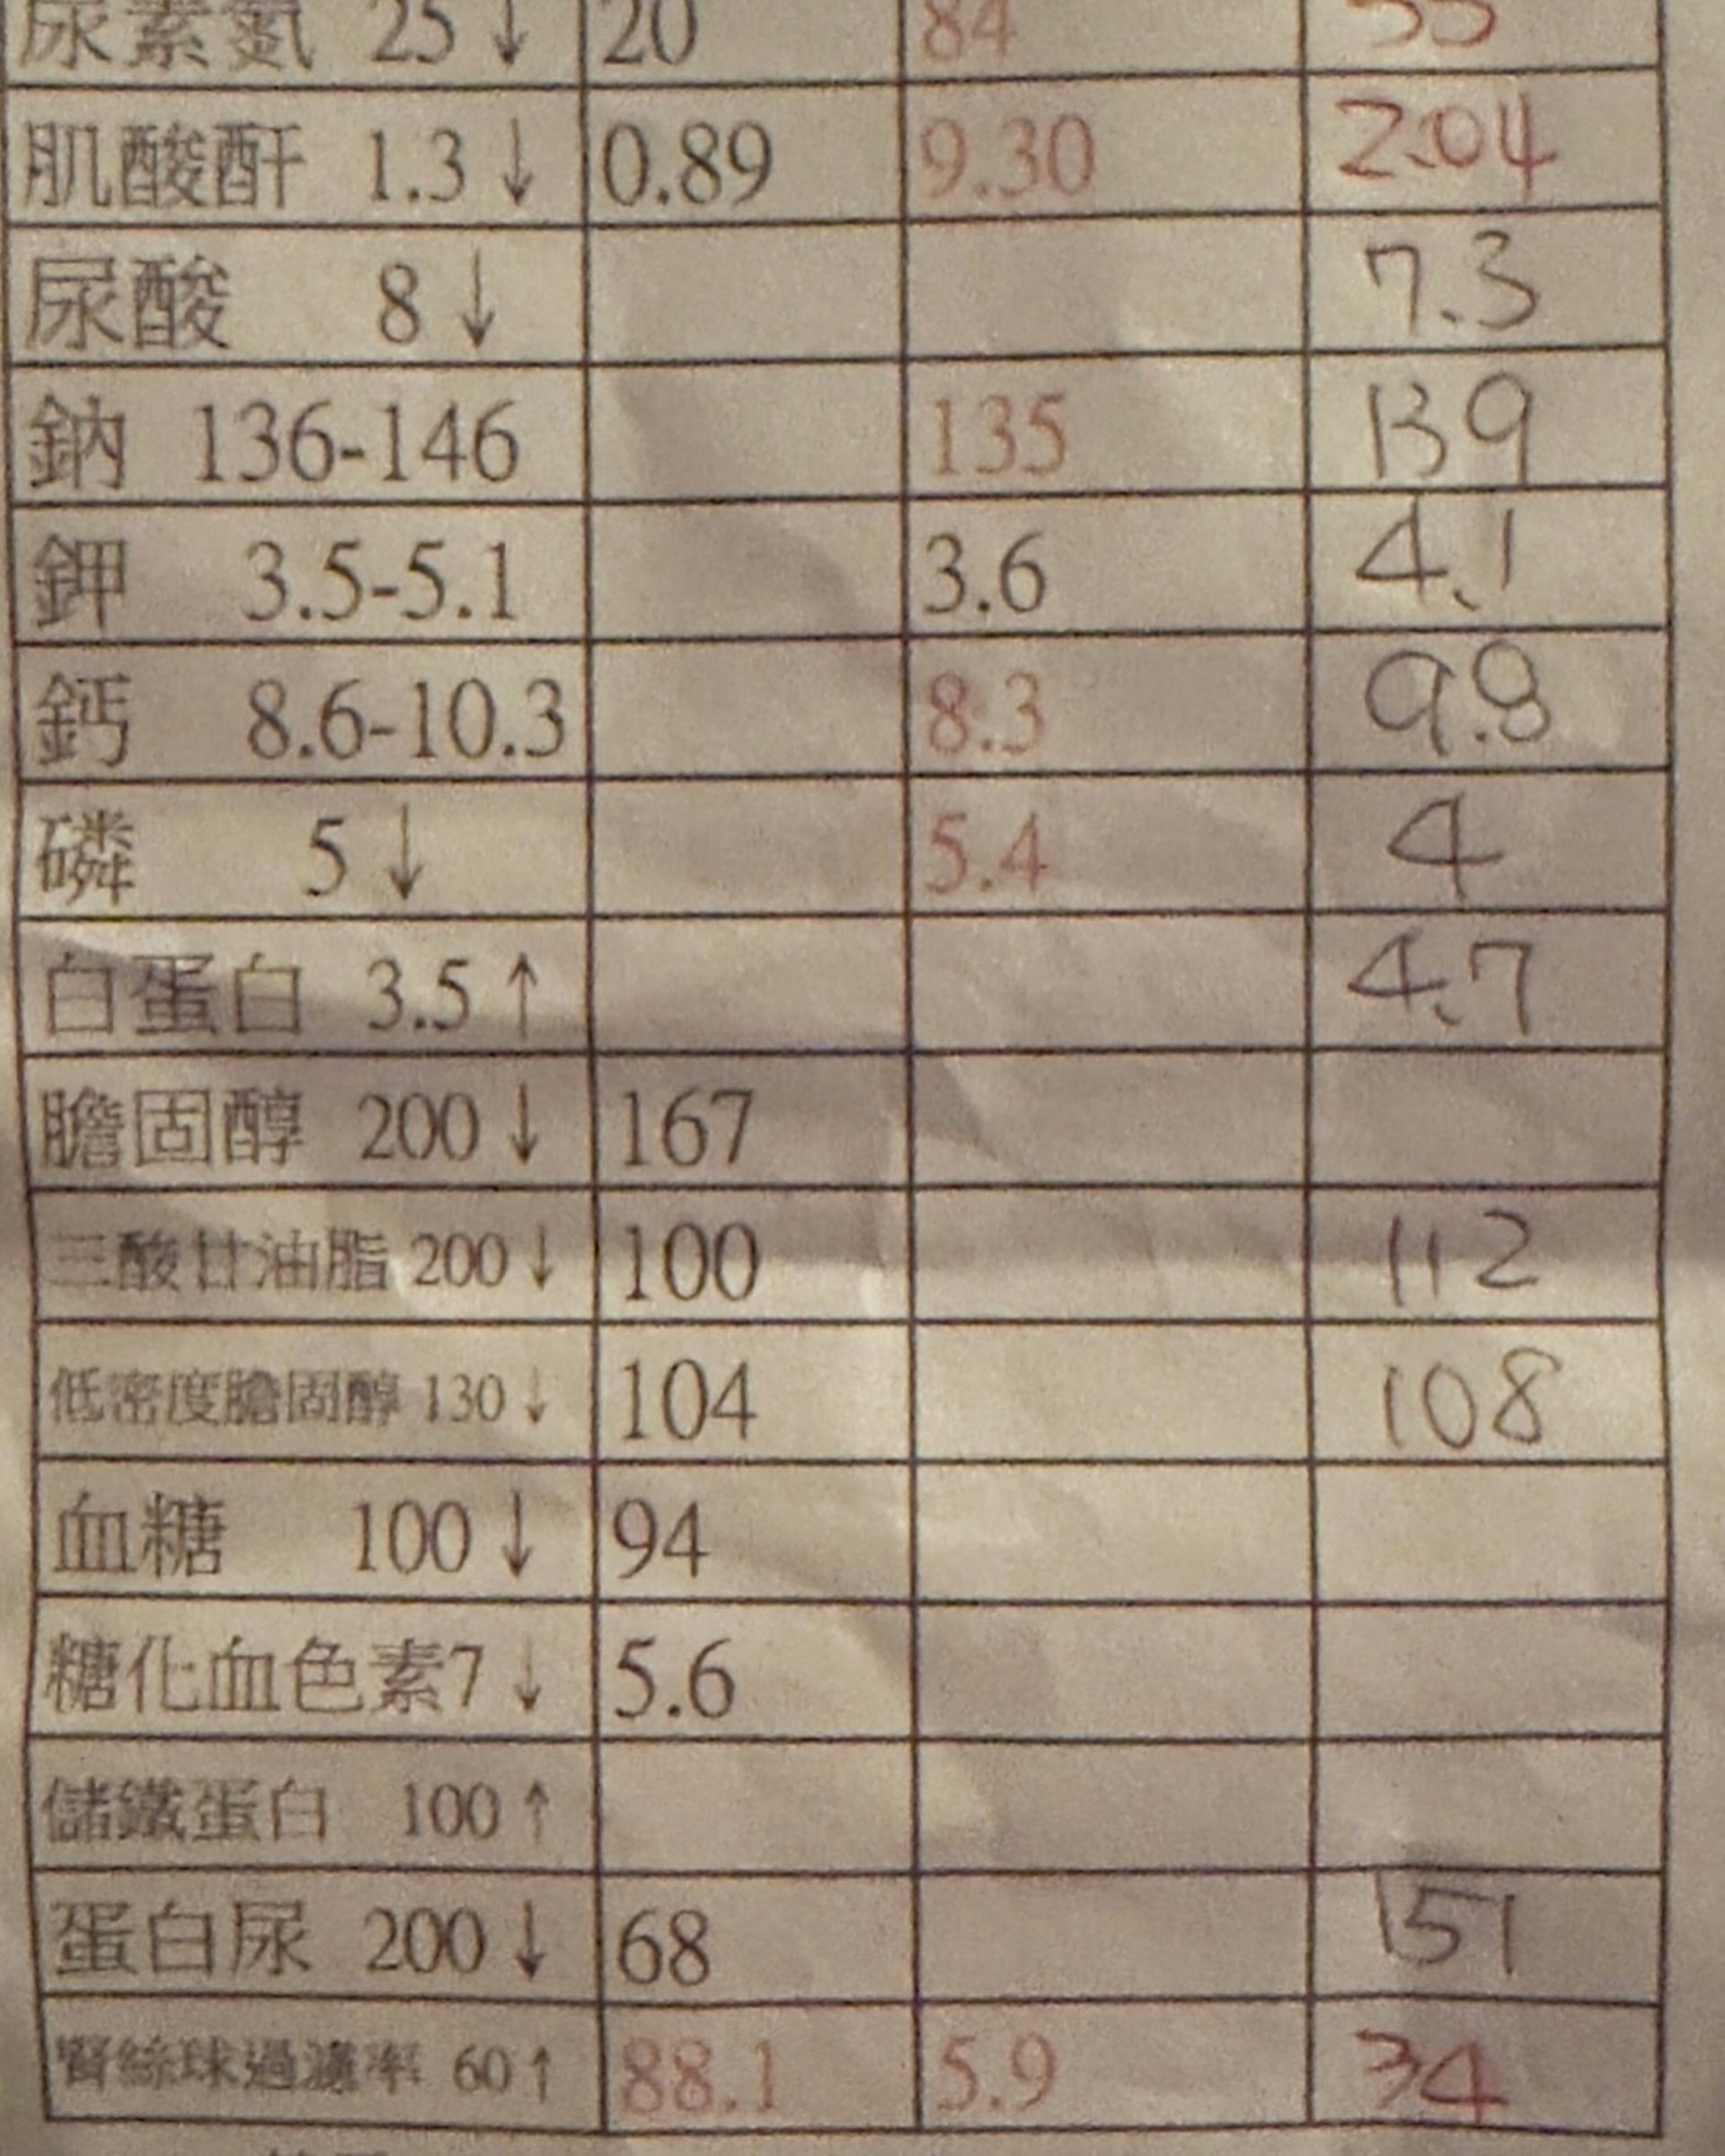 尿素氮 25↓ 20 84
肌酸酐 1.3↓ 0.89 9.30 2.04
尿酸 8↓ 7.3
鈉 136-146 135 139
鉀 3.5-5.1 3.6 4.1
鈣 8.6-10.3 8.3 9.8
磷 5↓ 5.4 4
白蛋白 3.5↑ 4.7
膽固醇 200↓ 167
三酸甘油脂 200↓ 100 112
低密度膽固醇 130↓ 104 108
血糖 100↓ 94
糖化血色素7↓ 5.6
儲鐵蛋白 100↑
蛋白尿 200↓ 68 151
腎絲球過濾率 60↑ 88.1 5.9 34